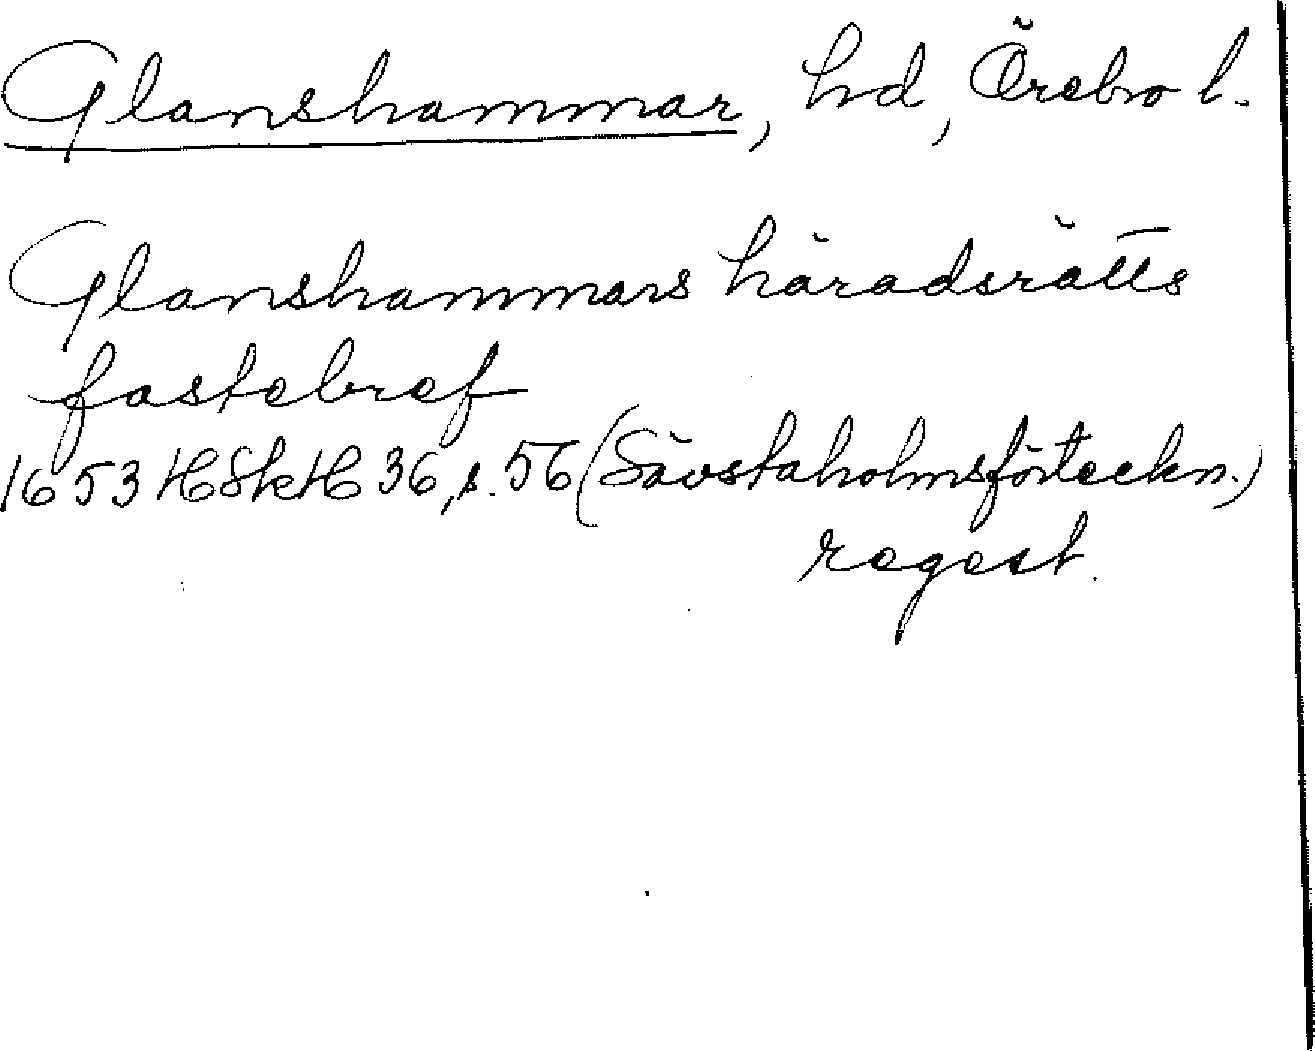 Glanshammar, hd, Örebro l.
Glanshammars häradsrätts
fastebref
1653 HSkH 36, s. 56 (Sävstaholmsförteckn.)
regest.